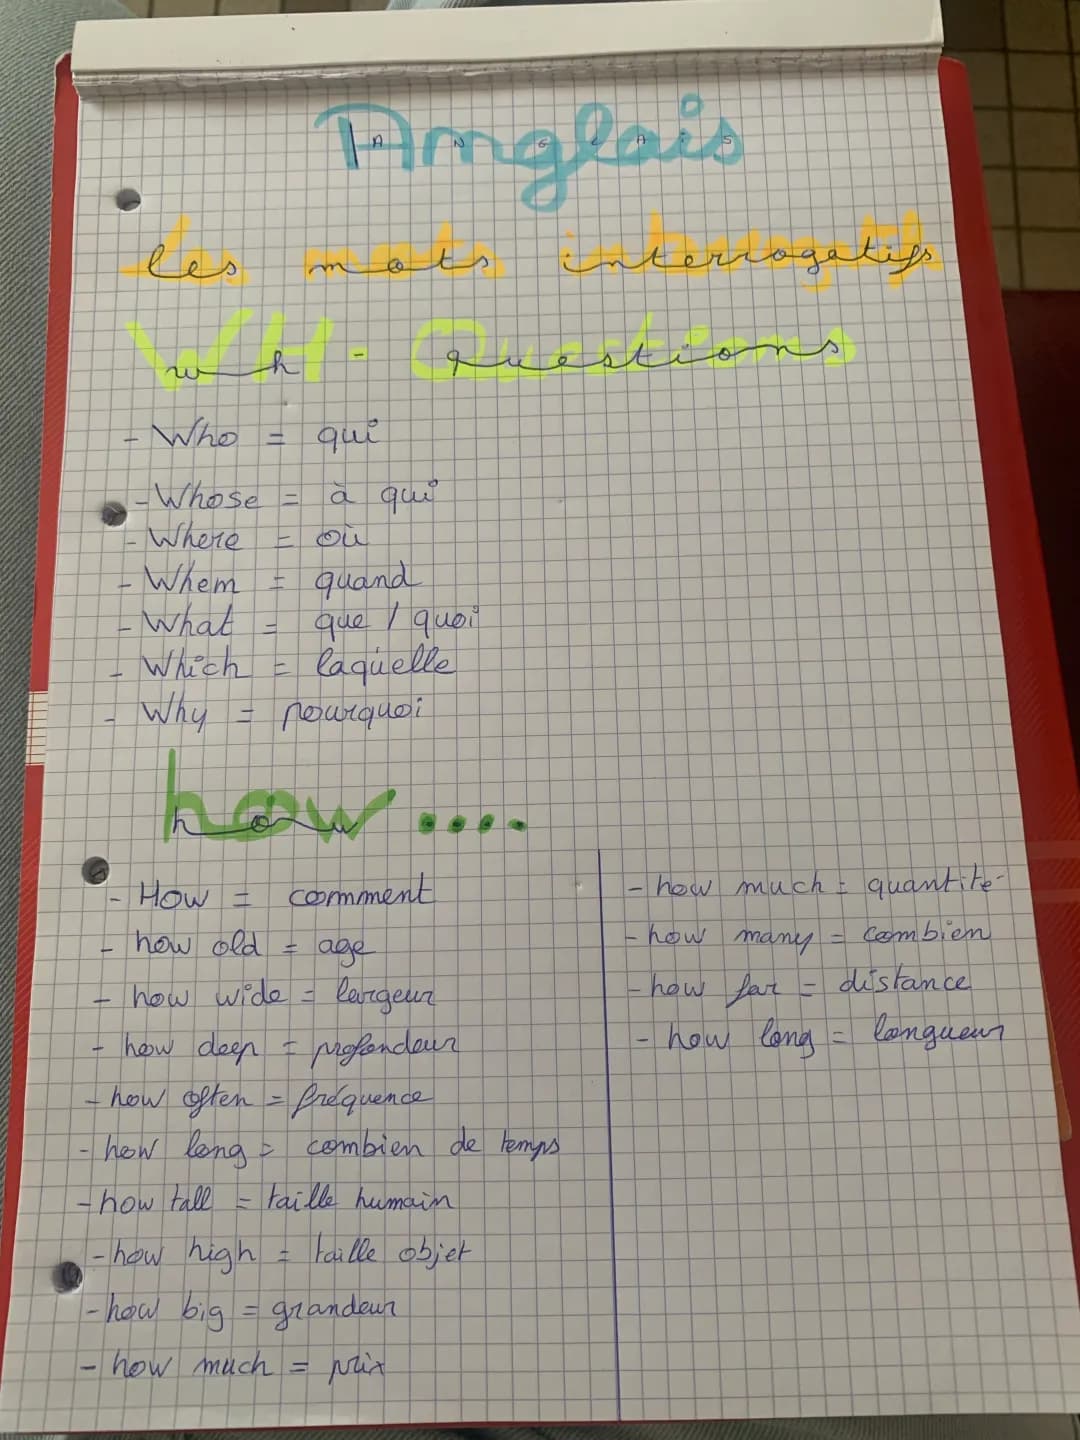 Anglais
ANGLAIS
les mots interrogatifs
WH - Questions
wh - questions
- Who = qui
- Whose = à qui
- Where = où
- When = quand
- What = que / quoi
- Which = laquelle
- Why = pourquoi
how ....
how
- How = comment
- how old = age
- how wide = largeur
- how deep = profondeur
- how often = fréquence
- how long = combien de temps
- how tall = taille humain
- how high = taille objet
- how big = grandeur
- how much = prix
- how much = quantité
- how many = combien
- how far = distance
- how long = longueur